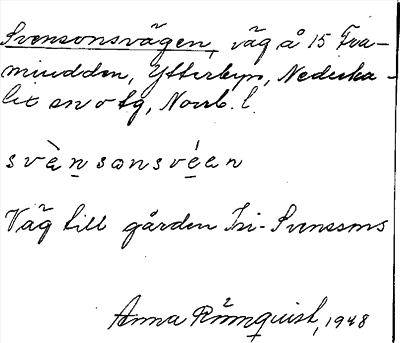 Svensonsvägen, väg å 15 Fra-
muudden, Ytterbyn, Nederka-
lix sn o tg, Norrb. l.
svὲnsonsvéen
Väg till gården Fri-Svenssons
Anna Rönnquist, 1948